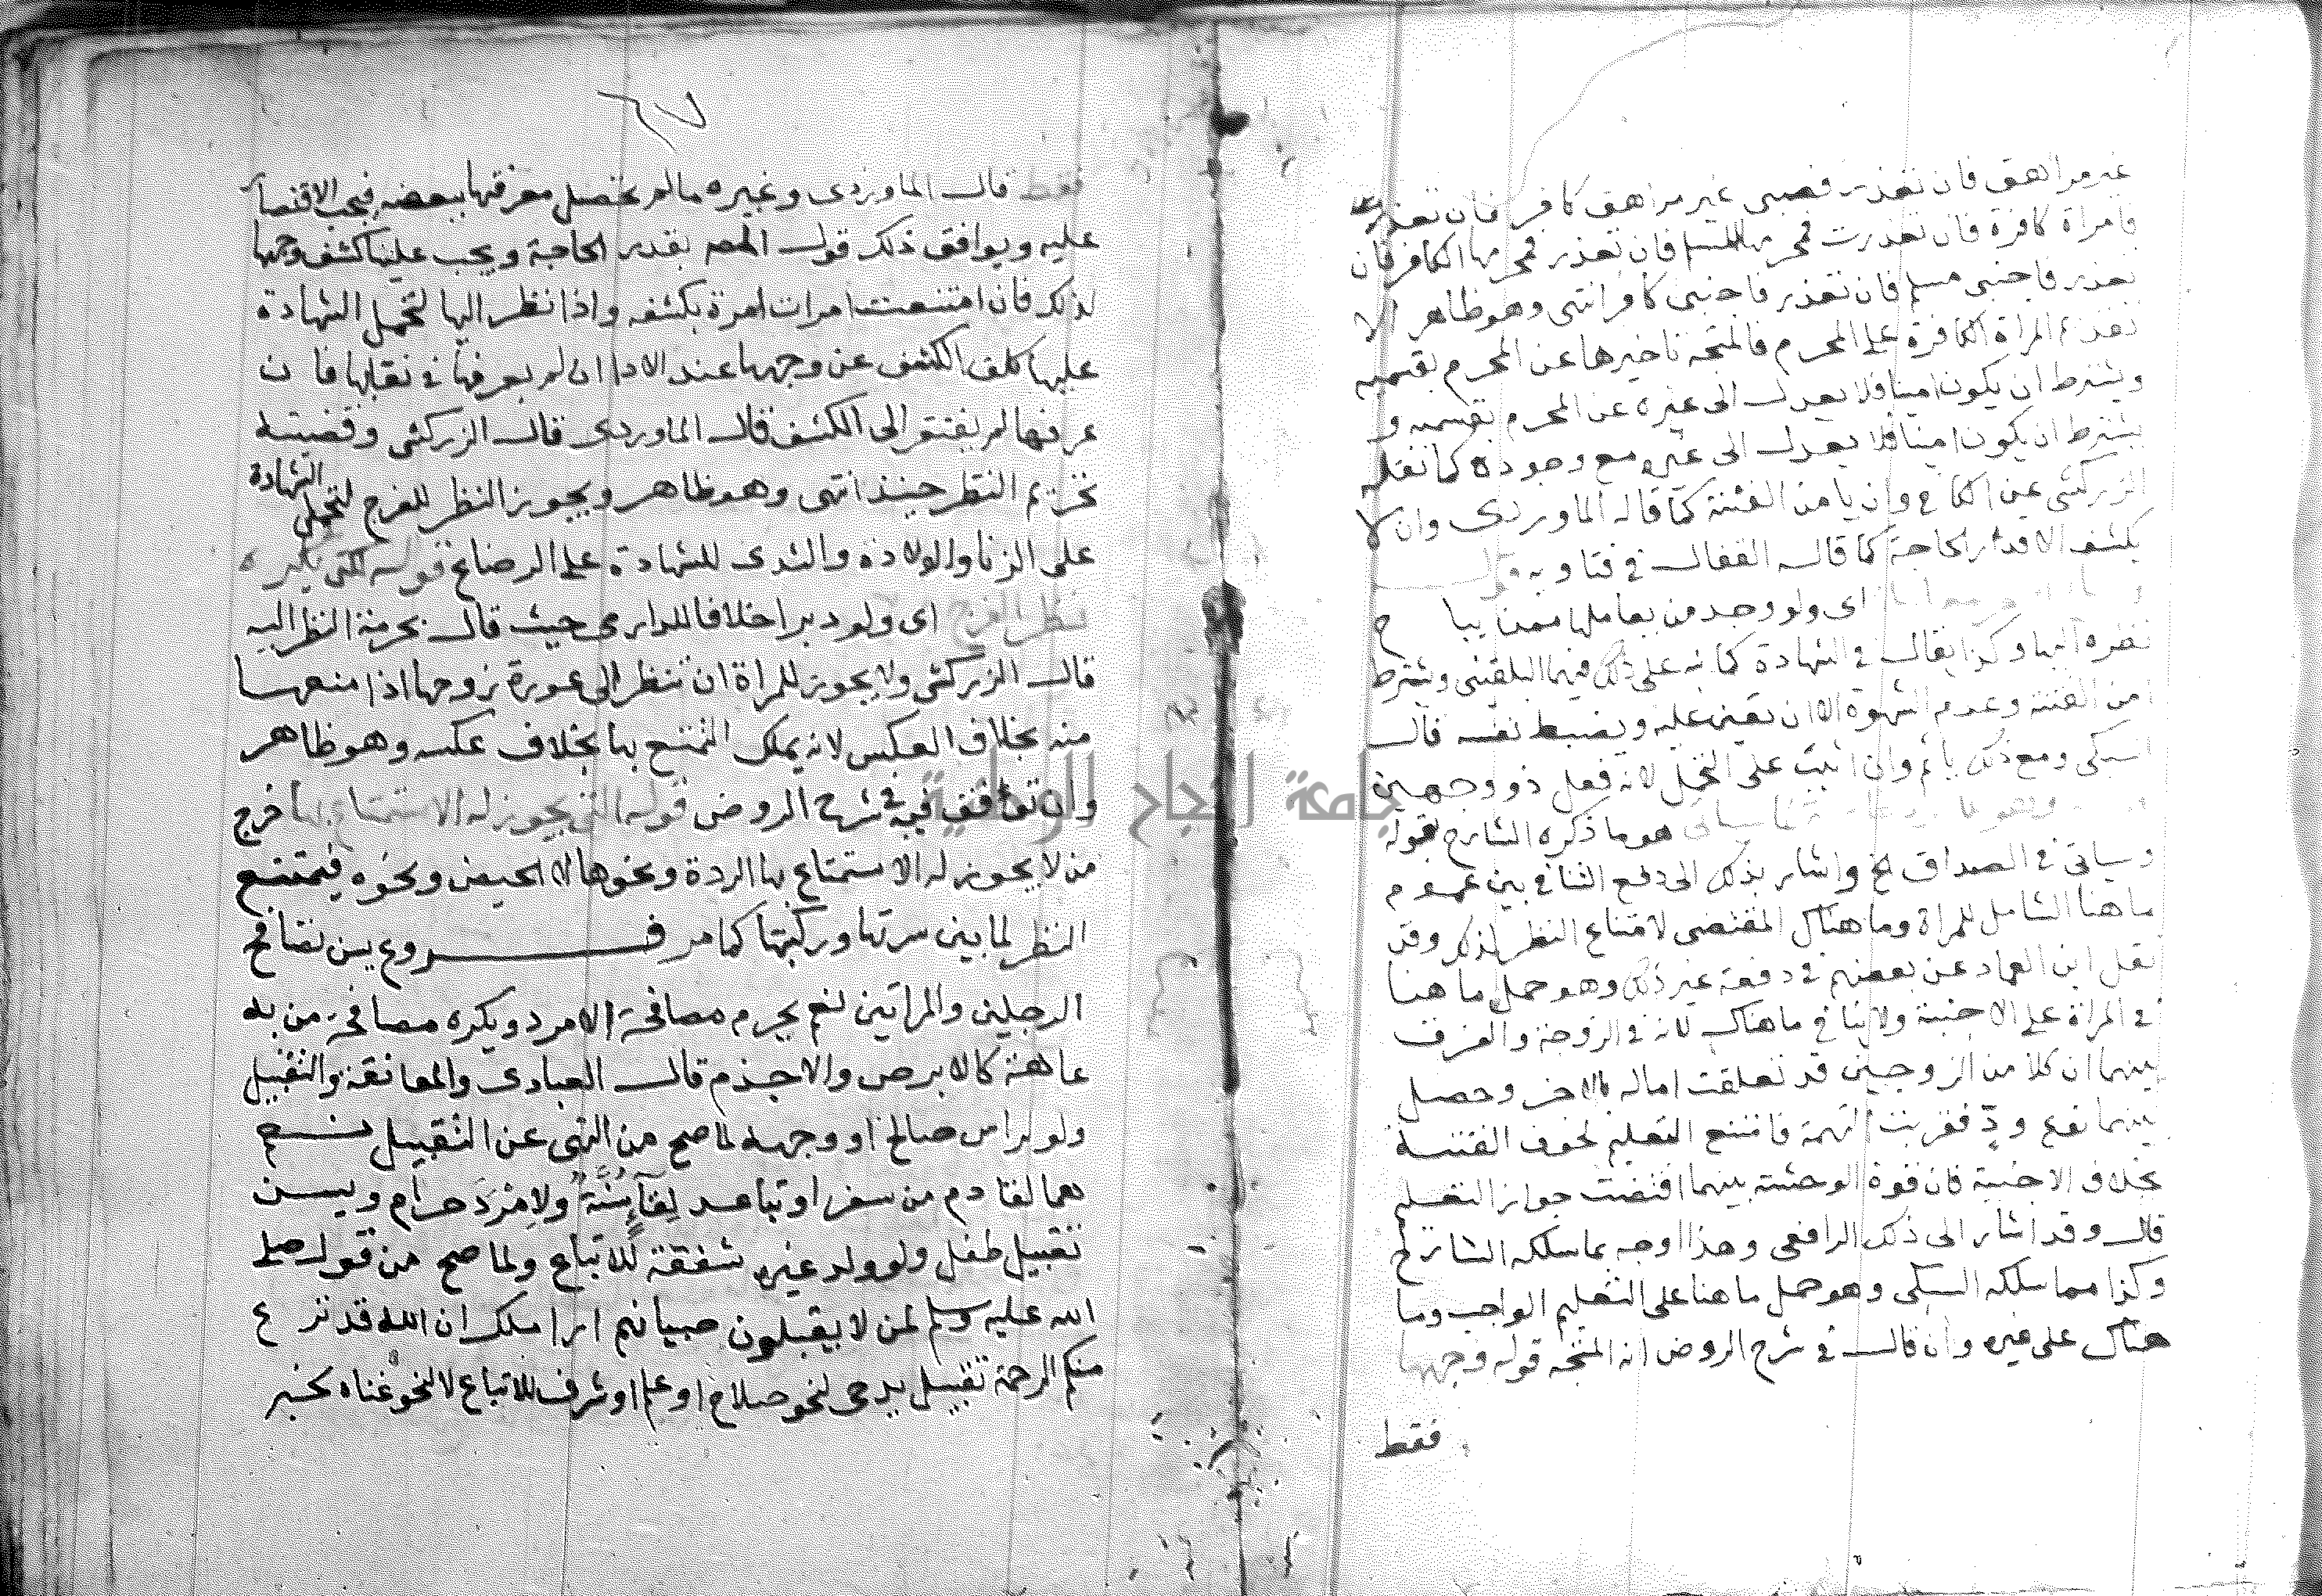 غير مراهق فان تعذر فصبي غير مراهق كافر فان تعذر
فامراة كافرة فان تعذرت فمحرمها المسلم فان تعذر فمحرمها الكافر فان
تعذر فاجنبي مسلم فان تعذر فاجنبي كافر انتهى وهو ظاهر الا
تقديم المراة الكافرة على المحرم فالمتجه تاخيرها عن المحرم بقسميه
ويشترط ان يكون امينا فلا يعدل الى غيره عن المحرم بقسميه و
يشترط ان يكون امينا فلا يعدل الى غيره مع وجوده كما نقله
الزركشي عن الكافي وان يامن الفتنة كما قاله الماوردي وان لا
يكشف الا قدر الحاجة كما قاله القفال في فتاويه
اي ولو وجد من يعاملها ممن يباح
نظره اليها وكذا يقال في الشهادة كما نبه على ذلك فيهما البلقيني ويشترط
امن الفتنة وعدم الشهوة الا ان تعين عليه ويضبط نفسه قال
السبكي ومع ذلك ياثم وان اثيب على التحمل لانه فعل ذو وجهين
هو ما ذكره الشارح بقوله
وسياتي في الصداق الخ واشار بذلك الى دفع التنافي بين عموم
ما هنا الشامل للمراة وما هناك المقتضي لامتناع النظر لذلك وقد
نقل ابن العماد عن بعضهم في دفعه غير ذلك وهو حمل ما هنا
في المراة على الاجنبية ولا ينافي ما هناك لانه في الزوجة والفرق
بينهما ان كلا من الزوجين قد تعلقت اماله بالاخر وحصل
بينهما نوع ودٍّ فقربت التهمة فامتنع التعليم لخوف الفتنة
بخلاف الاجنبية فان قوة الوحشة بينهما اقتضت جواز التعليم
قال وقد اشار الى ذلك الرافعي وهذا اوجه بما سلكه الشارح
وكذا مما سلكه السبكي وهو حمل ما هنا على التعليم الواجب وما
هناك على غيره وان قال في شرح الروض انه المتجه قوله وجهها
فقط
٦٧
فقط قال الماوردي وغيره ما لم تحصل معرفتها ببعضه فيجب الاقتصار
عليه ويوافق ذلك قول المصه بقدر الحاجة ويجب عليها كشف وجهها
لذلك فان امتنعت امرات امرة بكشفه واذا نظر اليها لتحمل الشهادة
عليها كلف الكشف عن وجهها عند الادا ان لم يعرفها في نقابها فان
عرفها لم يفتقر الى الكشف قال الماوردي قال الزركشي وقضيته
تحريم النظر حينئذ انتهى وهو ظاهر ويجوز النظر للفرج لتحمل الشهادة
على الزنا والولادة والثدي للشهادة على الرضاع قوله لكن يكره
نظر الفرج اي ولو دبرا خلافا للدارمي حيث قال بحرمة النظر اليه
قال الزركشي ولا يجوز للمراة ان تنظر الى عورة زوجها اذا منعها
منه بخلاف العكس لانه يملك التمتع بها بخلاف عكسه وهو ظاهر
وان توقف فيه في شرح الروض قوله التي يجوز له الاستمتاع بها خرج
من لا يجوز له الاستمتاع بها الردة ونحوها لا الحيض ونحوه فيمتنع
النظر لما بين سرتها وركبتها كما مر فـــــروع يسن تصافح
الرجلين والمراتين نعم يحرم مصافحة الامرد ويكره مصافحة من به
عاهة كالابرص والاجذم قال العبادي والمعانقة والتقبيل
ولو لراس صالح او وجهه لما صح من النهي عن التقبيل نعم
هما لقادم من سفر او تباعد لقآء سُنَّةٌ ولامْرَد حرام ويسن
تقبيل طفل ولو ولد غيره شفقة للاتباع ولما صح من قوله صلى
الله عليه وسلم لمن لا يقبلون صبيانهم او املك ان الله قد نزع
منكم الرحمة تقبيل يد حي لنحو صلاح او علم او شرف للاتباع لا لنحو غناه لخبر
جامعة النجاح الوطنية